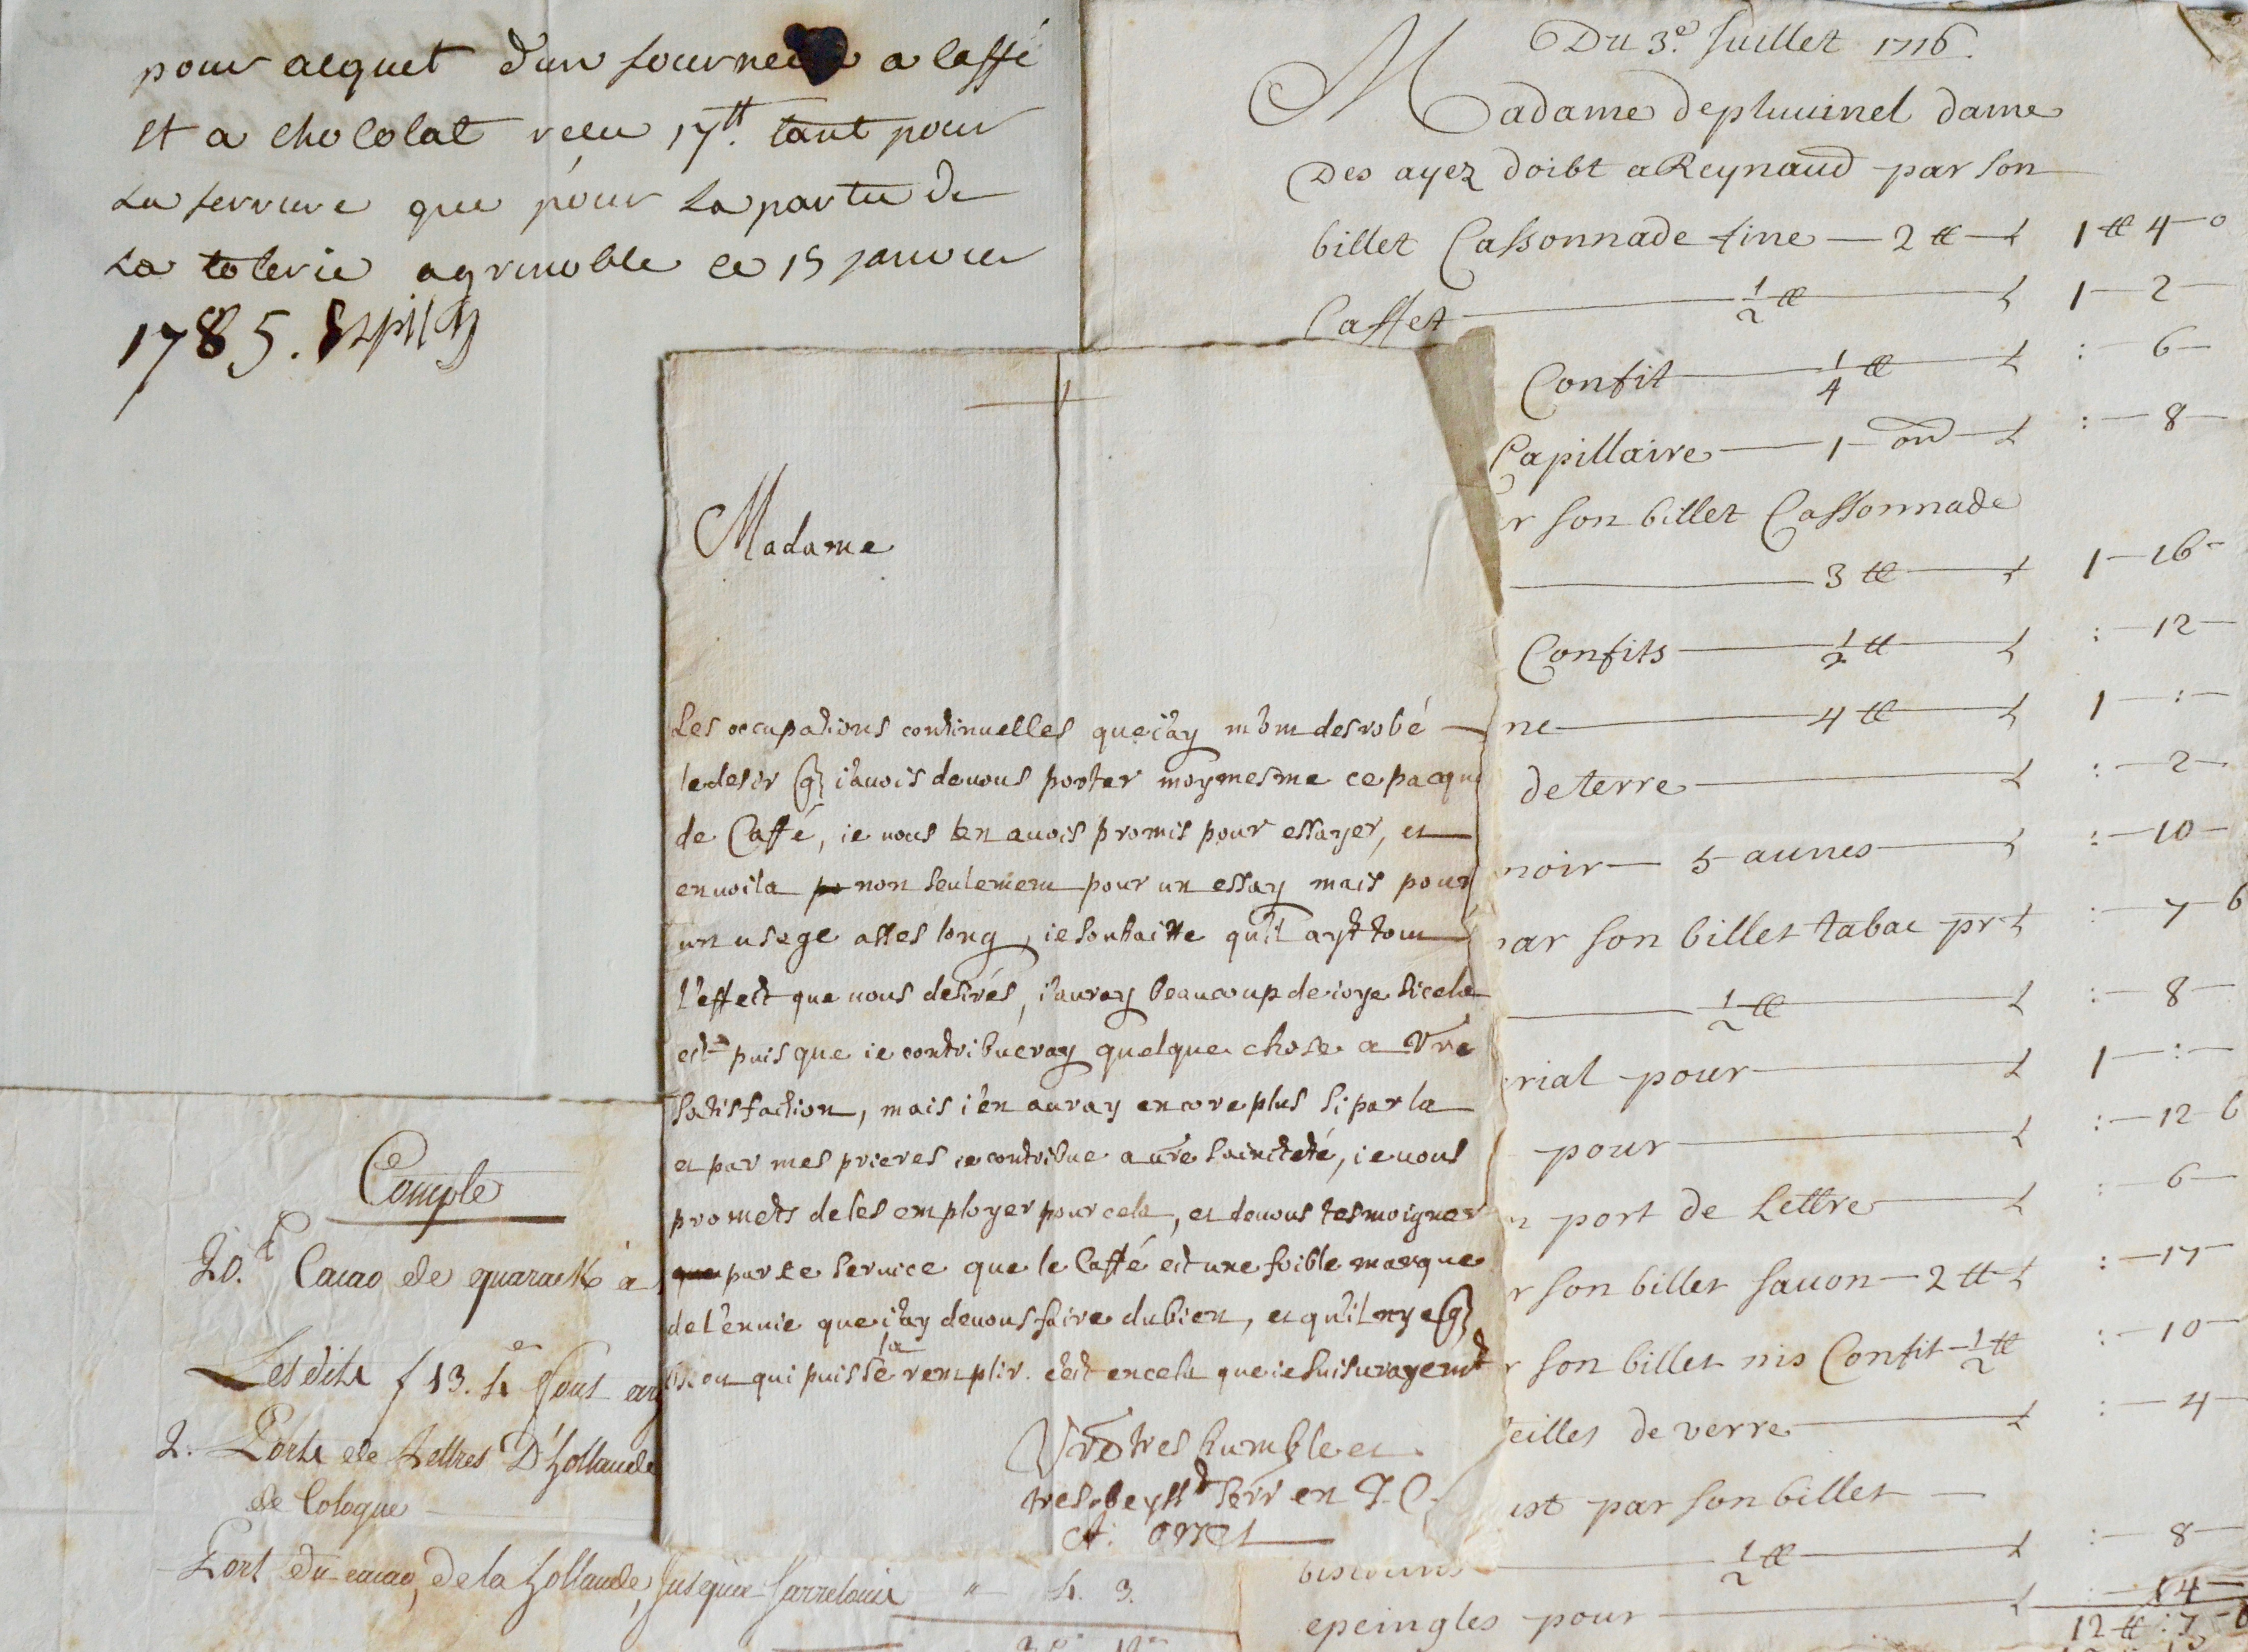 pour acquet d'un fourneau a caffé
et a chocolat recu 17tt. tant pour
la ferrure que pour la partie de
la tolerie a grenoble ce 15 janvier
1785.
Du 3.e Juillet 1716.
Madame depluuinel dame
Des ayez doibt a Reynaud par son
billet Cassonnade fine — 2 tt — 1 tt 4 — 0
Caffet — 1/2 tt — 1 — 2 —
Confit — 1/4 tt — : — 6 —
Capillaire — 1 — on — : — 8 —
r son billet Cassonnade
— 3 tt — 1 — 16 —
Confits — 1/2 tt — : — 12 —
ne — 4 tt — 1 — : —
de terre — : — 2 —
noir — 5 aunes — : — 10 —
par son billet tabac pr — : — 7 — 6
— 1/2 tt — : — 8 —
rial pour — 1 — : —
pour — : — 12 6
port de Lettre — : — 6 —
r son billet sauon — 2 tt — : — 17 —
r son billet nis Confit — 1/2 tt : — 10 —
eilles de verre — : — 4 —
par son billet —
— 1/2 tt — : — 8 —
epeingles pour — : — 14 —
12 tt : 7 — 6
Madame
Les occupations continuelles que i'ay m'ont desrobé
le desir q i'auois de uous porter moy mesme ce pacque
de Caffé, ie uous en auois promis pour essayer, et
en uoila po non seulement pour un essay mais pour
un usage asses long, ie souhaitte qu'il ayt tout
l'effect que uous desirés, i'auray beaucoup de ioye si cela
est puis que ie contribueray quelque chose a Vre
satisfaction, mais i'en auray encore plus si par la
et par mes prieres ie contribue a ure saincteté, ie uous
promets de les employer pour cela, et de uous tesmoigner
que par ce seruice que le Caffé est une foible marque
de l'enuie que i'ay de uous faire du bien, et qu'il ny a q
Dieu qui puisse la remplir. c'est en cela que ie suis urayemt
Vre tres humble et
tres obeysst serr en J. C.
Compte
20.t Cacao de quarack à
Lesdits f 13. 4 font
2. Ports de Lettres D'hollande
de Cologne
Port du cacao, de la hollande, Jusqu'a Sarrelouis " 4. 3.